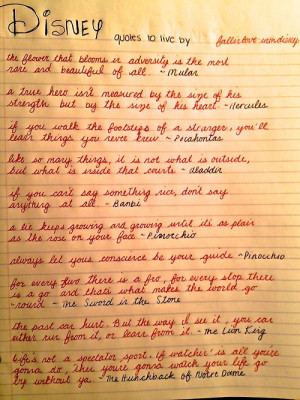 DISNEY
quotes to live by
the flower that blooms in adversity is the most
rare and beautiful of all. ~Mulan
a true hero isn't measured by the size of his
strength but by the size of his heart ~Hercules
if you walk the footsteps of a stranger, you'll
learn things you never knew ~Pocahontas
like so many things, it is not what is outside,
but what is inside that counts ~Aladdin
if you can't say something nice, don't say
anything at all ~Bambi
a lie keeps growing and growing until it's as plain
as the nose on your face ~Pinocchio
always let your conscience be your guide ~Pinocchio
for every two there is a fro, for every stop there
is a go and that's what makes the world go
round ~The Sword in the Stone
the past can hurt. But the way I see it, you can
either run from it, or learn from it. ~The Lion King
life's not a spectator sport. if watchin' is all you're
gonna do, then you're gonna watch your life go
by without ya. ~The Hunchback of Notre Dame